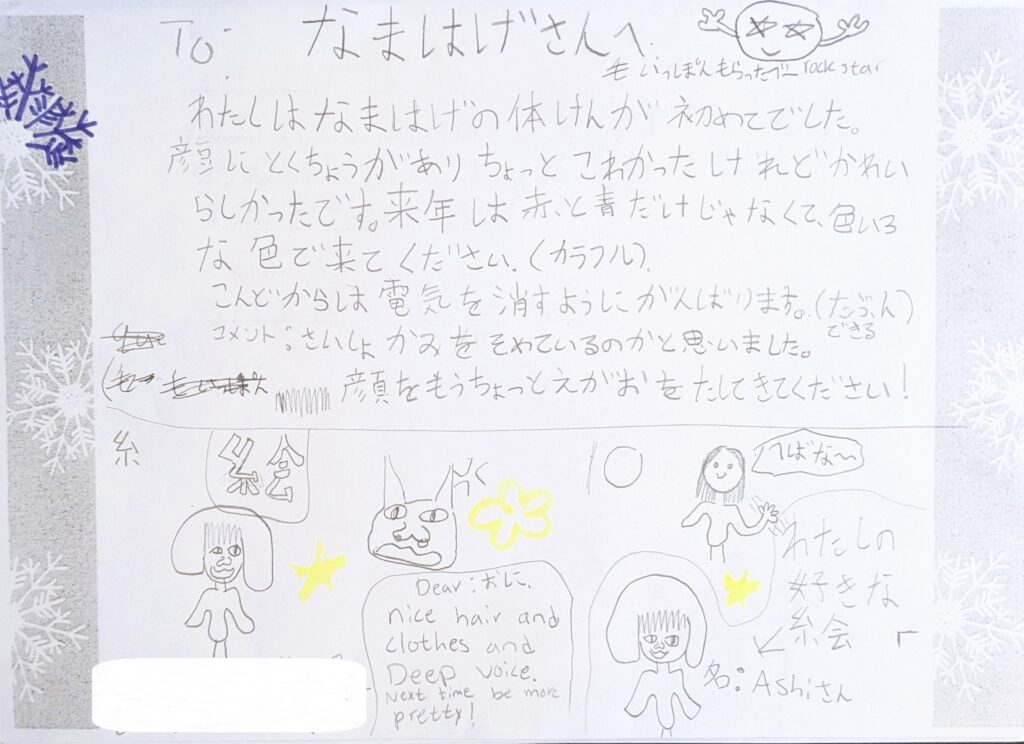 To: なまはげさんへ
毛いっぽんもらったブー rock star
わたしはなまはげの体けんが初めてでした。
顔にとくちょうがありちょっとこわかったけれどかわいい
らしかったです。来年は赤と青だけじゃなくて、色いろ
な色で来てください。(カラフル)
こんどからは電気を消すようにがんばります。(たぶん)
できる
コメント:さいしょかみをそめているのかと思いました。
顔をもうちょっとえがおをたしてきてください!
糸
絵
Dear:おに、
nice hair and
clothes and
Deep voice.
Next time be more
pretty!
わたしの
好きな
絵
名:Ashiさん